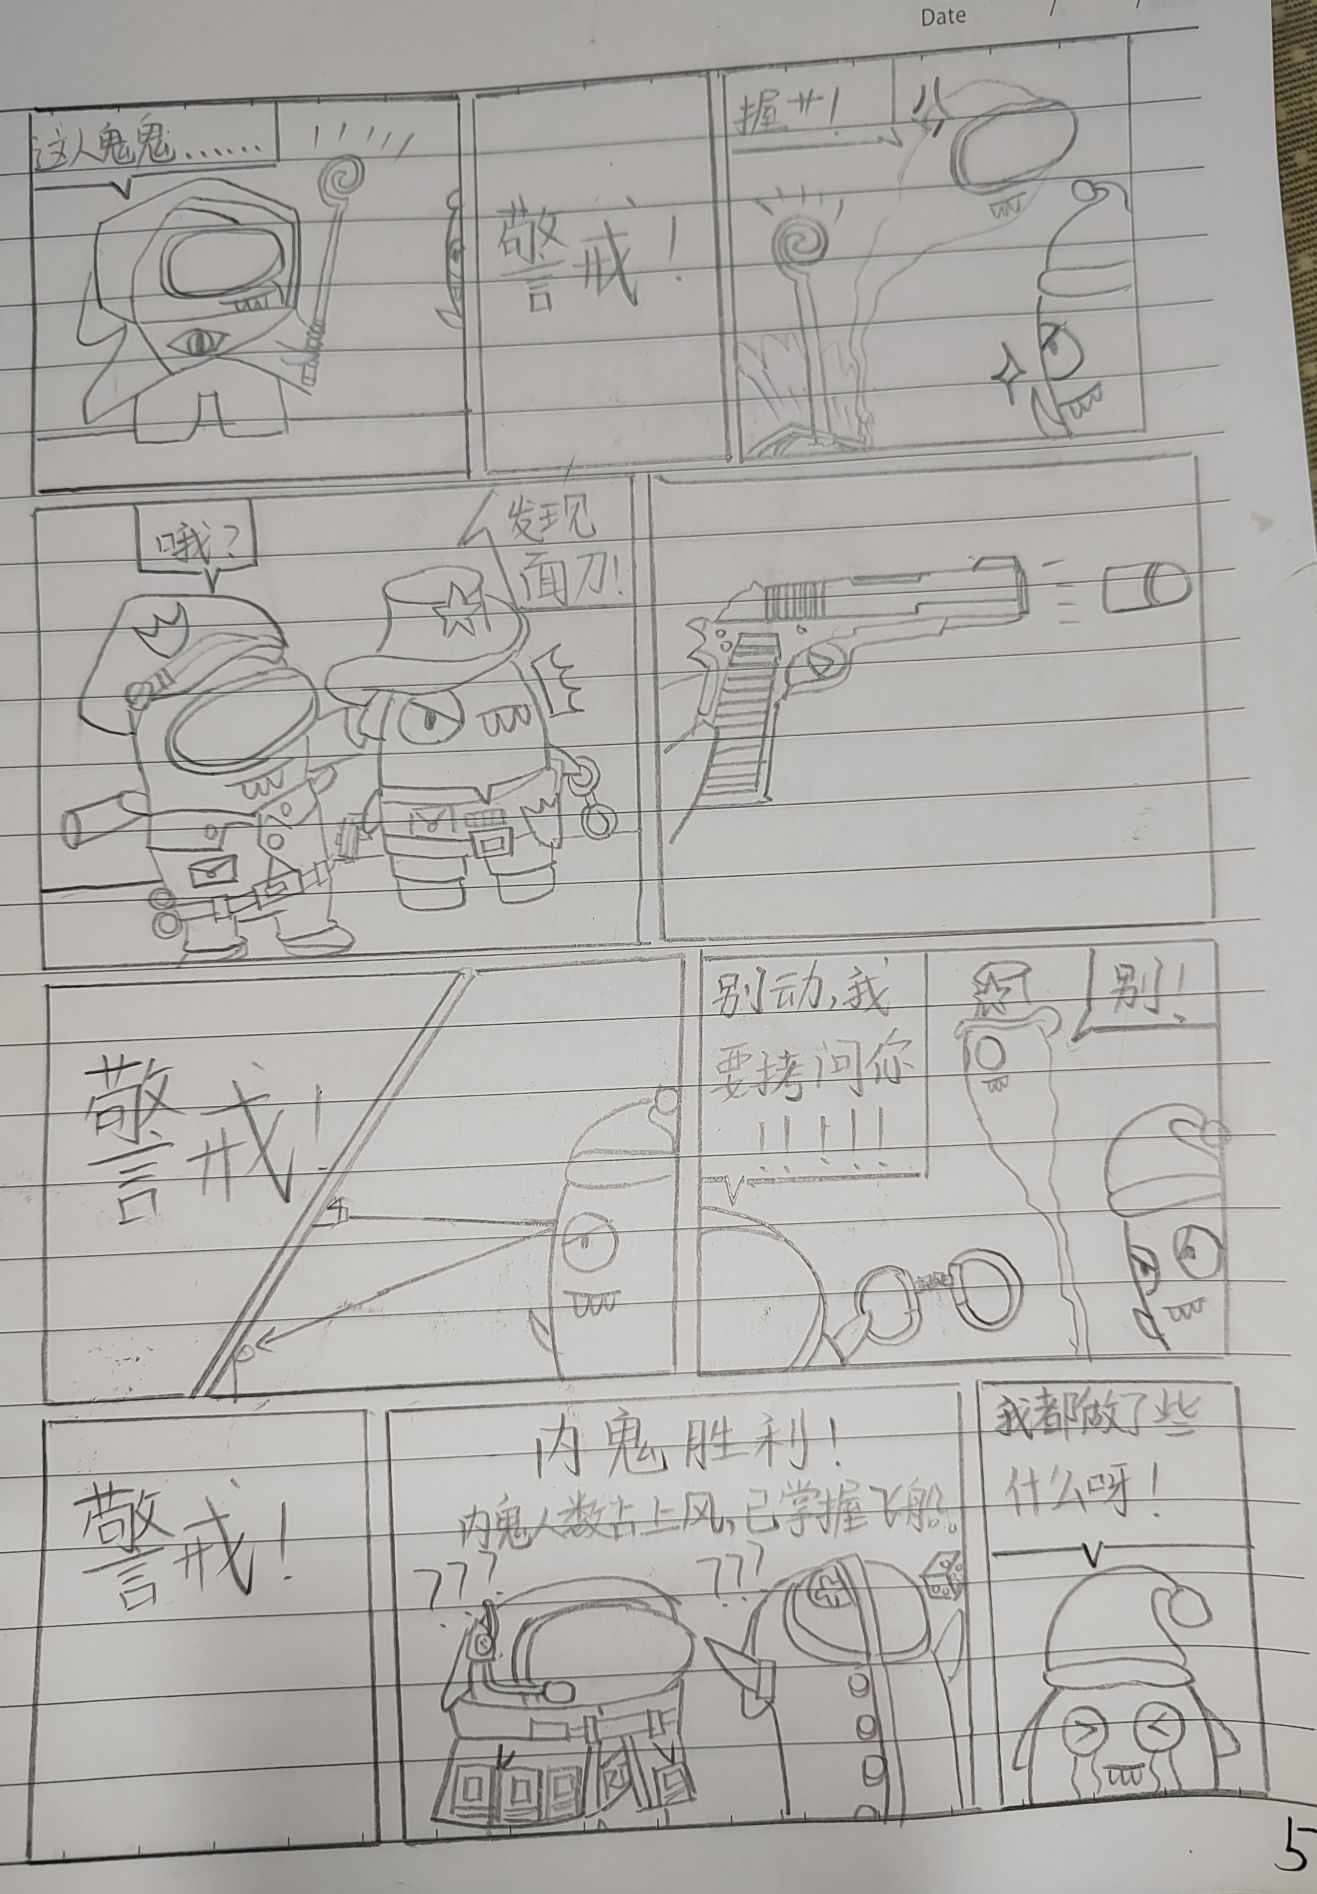 Date / /
这人鬼鬼……
警戒！
握艹！
哦？
发现
面刀！
警戒！
别动，我
要拷问你
！！！！！
别！
警戒！
内鬼胜利！
内鬼人数占上风，已掌握飞船。
？？？
？？？
我都做了些
什么呀！
5